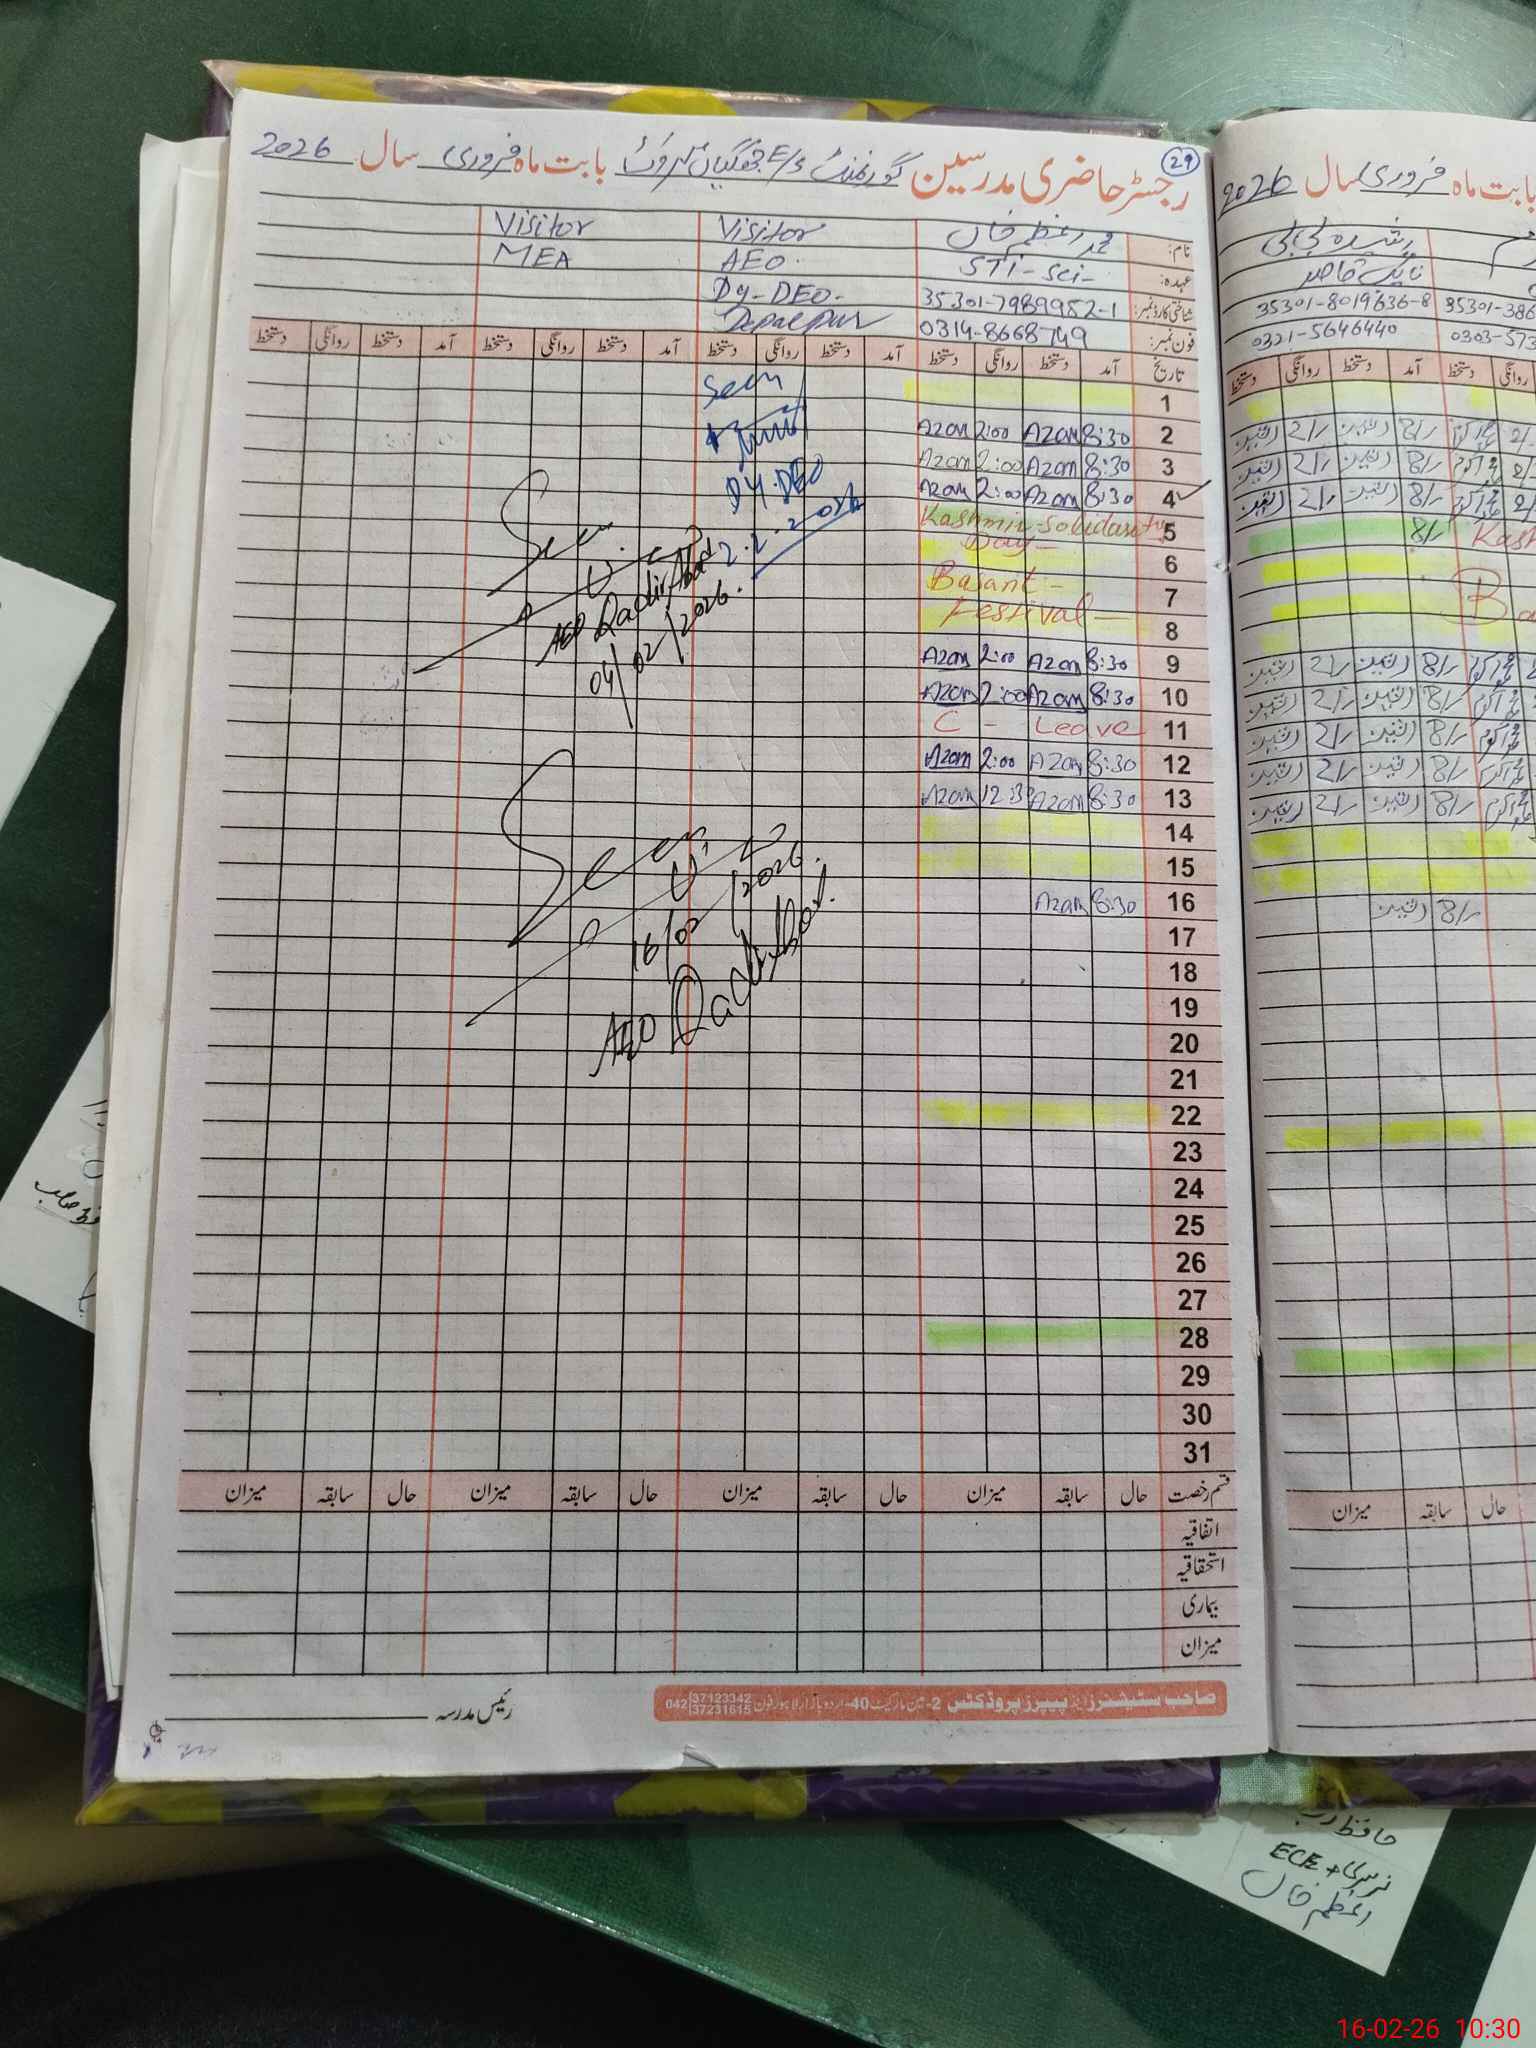 29
رجسٹر حاضری مدرسین گورنمنٹ E/S جھگیاں بابت ماہ فروری سال 2026
نام: محمد اعظم خان Visitor Visitor
عہدہ: STI-Sci- AEO. MEA
شناختی کارڈ نمبر: 35301-7989952-1 Dy-DEO-
فون نمبر: 0314-8668749 Depalpur
تاریخ آمد دستخط روانگی دستخط آمد دستخط روانگی دستخط آمد دستخط روانگی دستخط آمد دستخط روانگی دستخط
1
2 8:30 Azam 2:00 Azam
3 8:30 Azam 2:00 Azam
4 8:30 Azam 2:00 Azam
5 Kashmir Solidarity
Day-
6
7 Basant-
8 Festival-
9 8:30 Azam 2:00 Azam
10 8:30 Azam 2:00 Azam
11 C - Leave
12 8:30 Azam 2:00 Azam
13 8:30 Azam 12:30 Azam
14
15
16 8:30 Azam
17
18
19
20
21
22
23
24
25
26
27
28
29
30
31
Seen
Dy.DEO
2.2.2026
Seen
AEO Qadir Abad
04/02/2026.
Seen
16/02/2026.
AEO Qadir Abad.
قسم رخصت حال سابقہ میزان حال سابقہ میزان حال سابقہ میزان حال سابقہ میزان
اتفاقیہ
استحقاقیہ
بیماری
میزان
رئیس مدرسہ
صاحب سٹیشنرز اینڈ پیپرز پروڈکٹس 2-مین مارکیٹ 40-اردو بازار لاہور فون 042 37123342
37231615
بابت ماہ فروری سال 2026
رشیدہ بی بی
نائب قاصد
35301-8019636-8 35301-386
0321-5646440 0303-573
آمد دستخط روانگی دستخط دستخط روانگی
8/ 12/
8/ 12/
8/ 12/
8/ Kash
Ba
8/ 12/
8/ 12/
8/ 12/
8/ 12/
8/ 12/
8/
حال سابقہ میزان
ECE + نرسری
اعظم خان
16-02-26 10:30